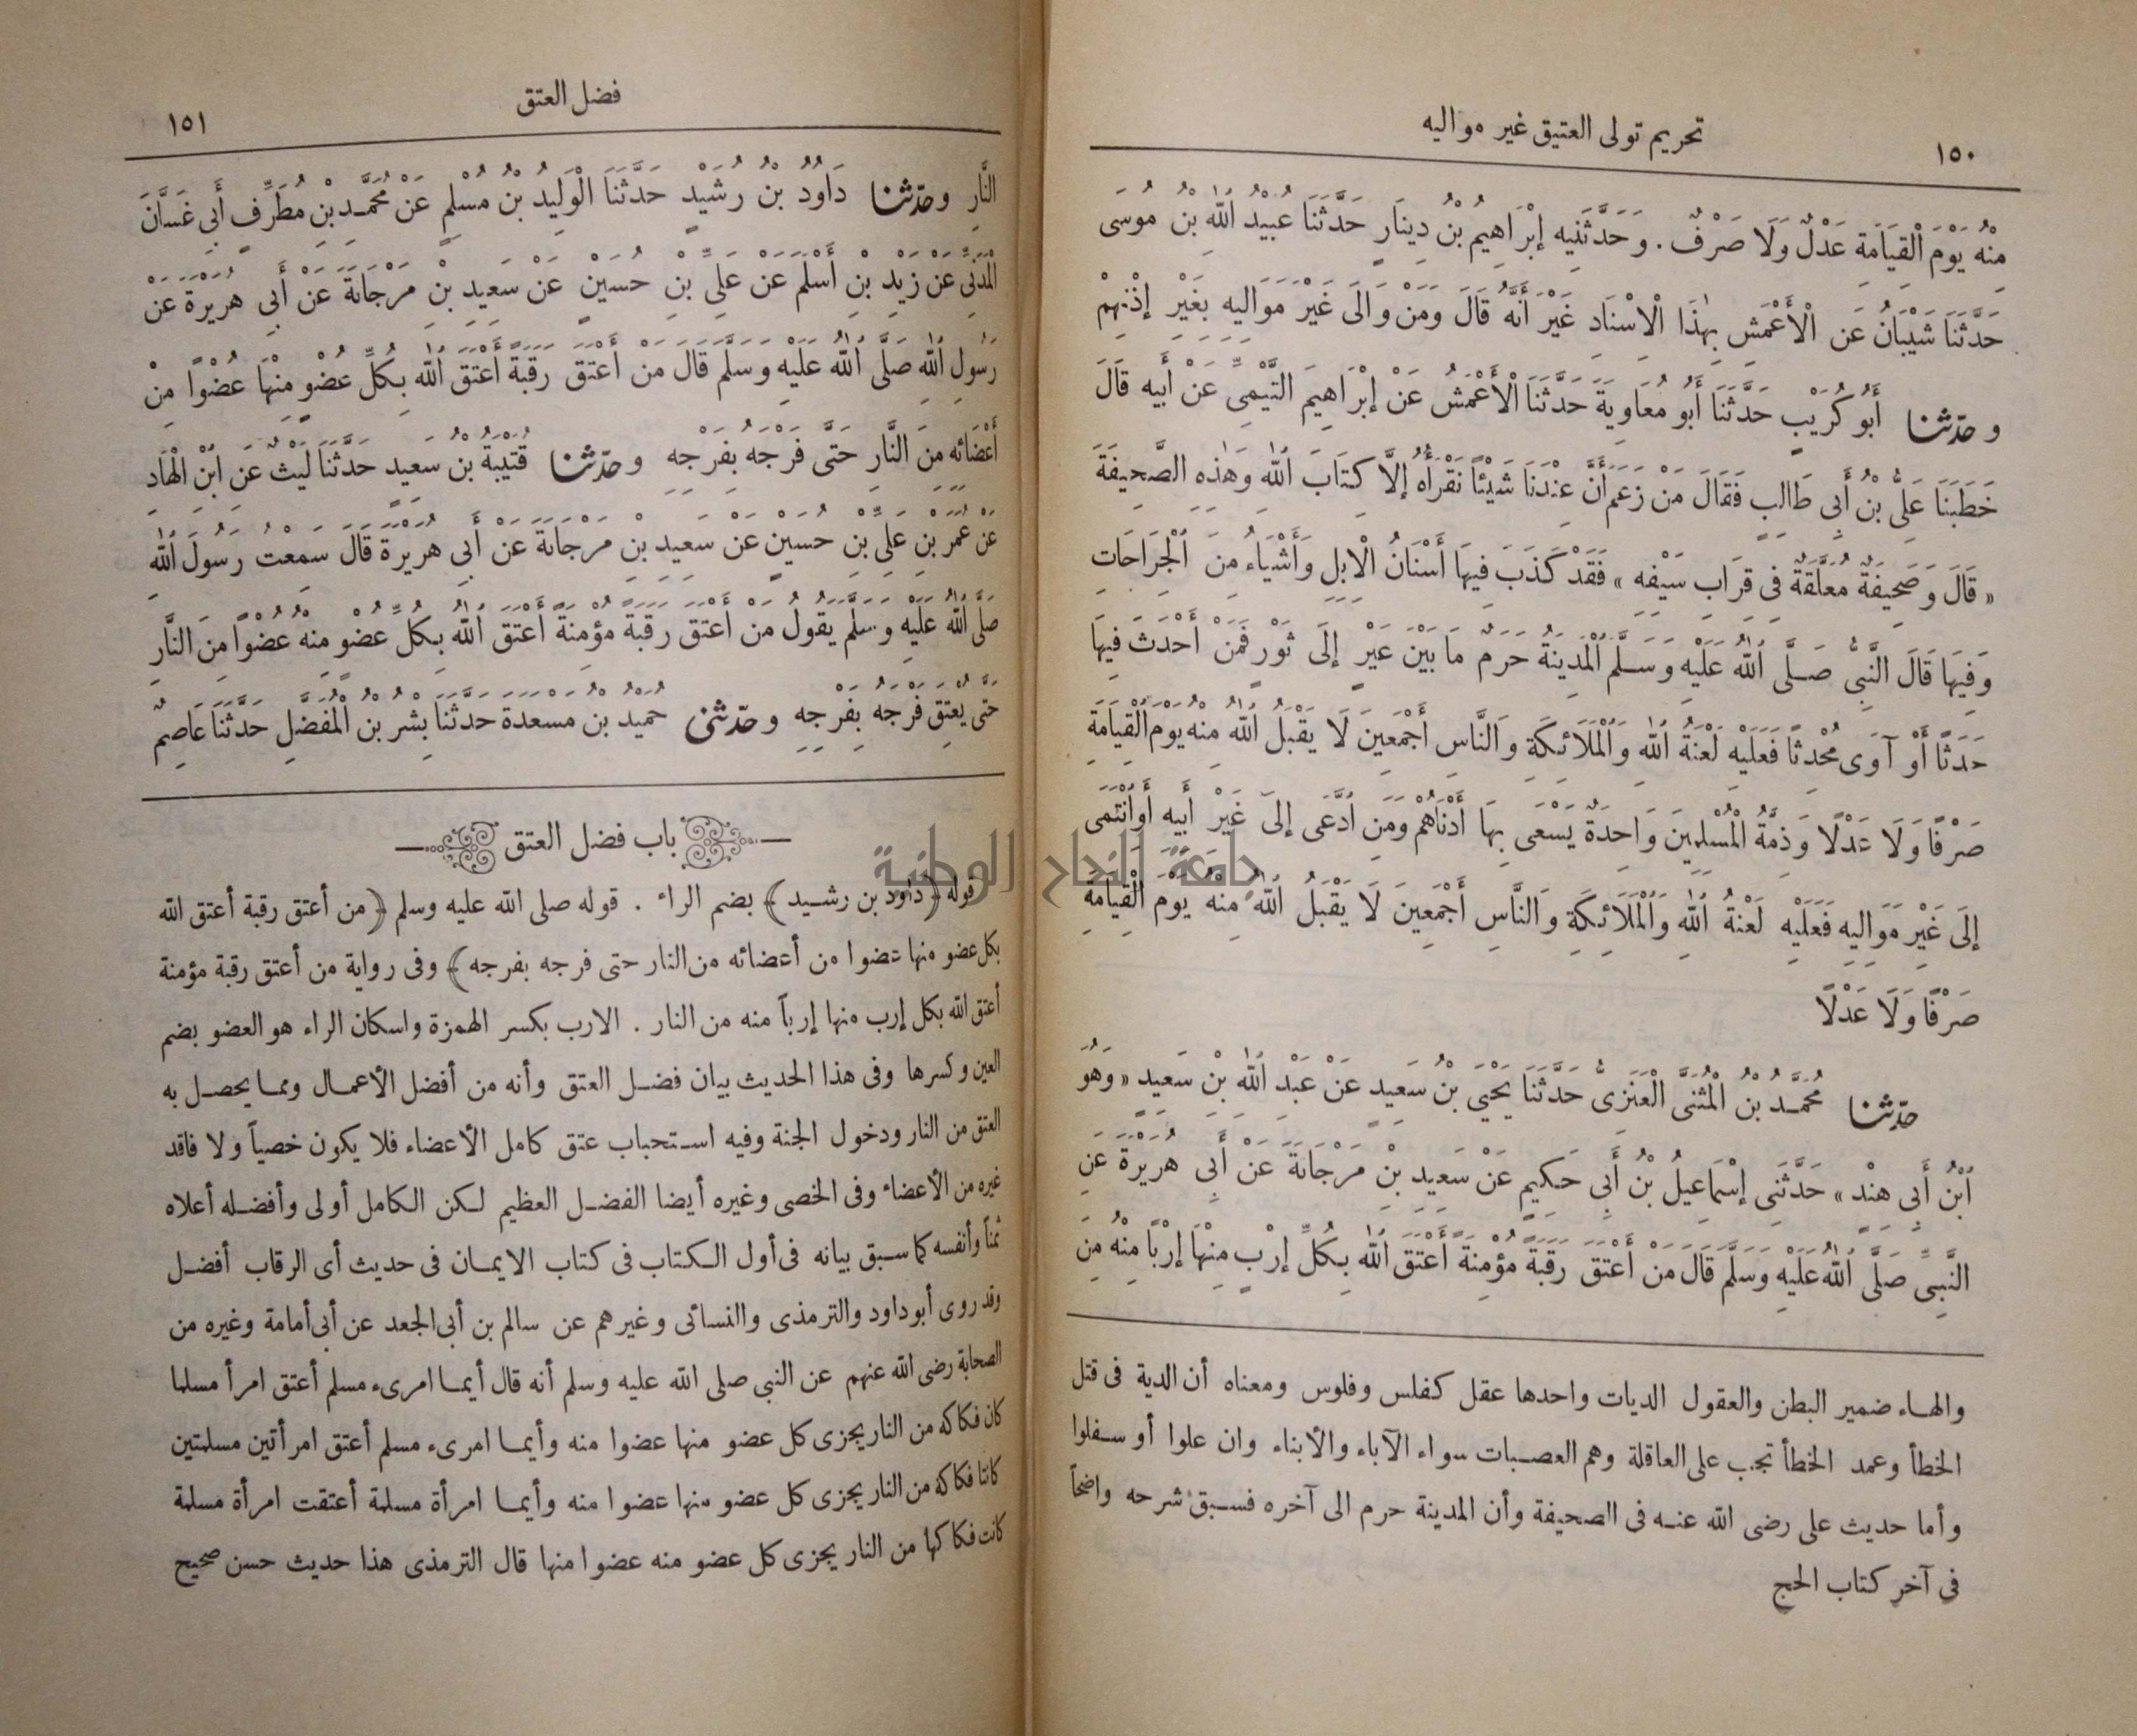 ١٥٠
تحريم تولى العتيق غير مواليه
مِنْهُ يَوْمَ الْقِيَامَةِ عَدْلٌ وَلَا صَرْفٌ . وَحَدَّثَنِيهِ إِبْرَاهِيمُ بْنُ دِينَارٍ حَدَّثَنَا عُبَيْدُ اللهِ بْنُ مُوسَى
حَدَّثَنَا شَيْبَانُ عَنِ الْأَعْمَشِ بِهٰذَا الْاِسْنَادِ غَيْرَ أَنَّهُ قَالَ وَمَنْ وَالَى غَيْرَ مَوَالِيهِ بِغَيْرِ إِذْنِهِمْ
وحَدَّثَنَا أَبُو كُرَيْبٍ حَدَّثَنَا أَبُو مُعَاوِيَةَ حَدَّثَنَا الْأَعْمَشُ عَنْ إِبْرَاهِيمَ التَّيْمِيِّ عَنْ أَبِيهِ قَالَ
خَطَبَنَا عَلِيُّ بْنُ أَبِي طَالِبٍ فَقَالَ مَنْ زَعَمَ أَنَّ عِنْدَنَا شَيْئًا نَقْرَأُهُ إِلَّا كِتَابَ اللهِ وَهٰذِهِ الصَّحِيفَةَ
« قَالَ وَصَحِيفَةٌ مُعَلَّقَةٌ فِي قِرَابِ سَيْفِهِ » فَقَدْ كَذَبَ فِيهَا أَسْنَانُ الْاِبِلِ وَأَشْيَاءُ مِنَ الْجِرَاحَاتِ
وَفِيهَا قَالَ النَّبِيُّ صَلَّى اللهُ عَلَيْهِ وَسَلَّمَ الْمَدِينَةُ حَرَمٌ مَا بَيْنَ عَيْرٍ إِلَى ثَوْرٍ فَمَنْ أَحْدَثَ فِيهَا
حَدَثًا أَوْ آوَى مُحْدِثًا فَعَلَيْهِ لَعْنَةُ اللهِ وَالْمَلَائِكَةِ وَالنَّاسِ أَجْمَعِينَ لَا يَقْبَلُ اللهُ مِنْهُ يَوْمَ الْقِيَامَةِ
صَرْفًا وَلَا عَدْلًا وَذِمَّةُ الْمُسْلِمِينَ وَاحِدَةٌ يَسْعَى بِهَا أَدْنَاهُمْ وَمَنِ ادَّعَى إِلَى غَيْرِ أَبِيهِ أَوِ انْتَمَى
إِلَى غَيْرِ مَوَالِيهِ فَعَلَيْهِ لَعْنَةُ اللهِ وَالْمَلَائِكَةِ وَالنَّاسِ أَجْمَعِينَ لَا يَقْبَلُ اللهُ مِنْهُ يَوْمَ الْقِيَامَةِ
صَرْفًا وَلَا عَدْلًا
حَدَّثَنَا مُحَمَّدُ بْنُ الْمُثَنَّى الْعَنَزِيُّ حَدَّثَنَا يَحْيَى بْنُ سَعِيدٍ عَنْ عَبْدِ اللهِ بْنِ سَعِيدٍ « وَهُوَ
ابْنُ أَبِي هِنْدٍ » حَدَّثَنِي إِسْمَاعِيلُ بْنُ أَبِي حَكِيمٍ عَنْ سَعِيدِ بْنِ مَرْجَانَةَ عَنْ أَبِي هُرَيْرَةَ عَنِ
النَّبِيِّ صَلَّى اللهُ عَلَيْهِ وَسَلَّمَ قَالَ مَنْ أَعْتَقَ رَقَبَةً مُؤْمِنَةً أَعْتَقَ اللهُ بِكُلِّ إِرْبٍ مِنْهَا إِرْبًا مِنْهُ مِنَ
والهاء ضمير البطن والعقول الديات واحدها عقل كفلس وفلوس ومعناه أن الدية فى قتل
الخطأ وعمد الخطأ تجب على العاقلة وهم العصبات سواء الآباء والأبناء وان علوا أو سفلوا
وأما حديث على رضى الله عنه فى الصحيفة وأن المدينة حرم الى آخره فسبق شرحه واضحاً
فى آخر كتاب الحج
فضل العتق
١٥١
النَّارِ وحَدَّثَنَا دَاوُدُ بْنُ رُشَيْدٍ حَدَّثَنَا الْوَلِيدُ بْنُ مُسْلِمٍ عَنْ مُحَمَّدِ بْنِ مُطَرِّفٍ أَبِي غَسَّانَ
الْمَدَنِيِّ عَنْ زَيْدِ بْنِ أَسْلَمَ عَنْ عَلِيِّ بْنِ حُسَيْنٍ عَنْ سَعِيدِ بْنِ مَرْجَانَةَ عَنْ أَبِي هُرَيْرَةَ عَنْ
رَسُولِ اللهِ صَلَّى اللهُ عَلَيْهِ وَسَلَّمَ قَالَ مَنْ أَعْتَقَ رَقَبَةً أَعْتَقَ اللهُ بِكُلِّ عُضْوٍ مِنْهَا عُضْوًا مِنْ
أَعْضَائِهِ مِنَ النَّارِ حَتَّى فَرْجَهُ بِفَرْجِهِ وحَدَّثَنَا قُتَيْبَةُ بْنُ سَعِيدٍ حَدَّثَنَا لَيْثٌ عَنِ ابْنِ الْهَادِ
عَنْ عُمَرَ بْنِ عَلِيِّ بْنِ حُسَيْنٍ عَنْ سَعِيدِ بْنِ مَرْجَانَةَ عَنْ أَبِي هُرَيْرَةَ قَالَ سَمِعْتُ رَسُولَ اللهِ
صَلَّى اللهُ عَلَيْهِ وَسَلَّمَ يَقُولُ مَنْ أَعْتَقَ رَقَبَةً مُؤْمِنَةً أَعْتَقَ اللهُ بِكُلِّ عُضْوٍ مِنْهُ عُضْوًا مِنَ النَّارِ
حَتَّى يُعْتِقَ فَرْجَهُ بِفَرْجِهِ وحَدَّثَنِي حُمَيْدُ بْنُ مَسْعَدَةَ حَدَّثَنَا بِشْرُ بْنُ الْمُفَضَّلِ حَدَّثَنَا عَاصِمٌ
باب فضل العتق
قوله ﴿داود بن رشيد﴾ بضم الراء . قوله صلى الله عليه وسلم ﴿من أعتق رقبة أعتق الله
بكل عضو منها عضوا من أعضائه من النار حتى فرجه بفرجه﴾ وفى رواية من أعتق رقبة مؤمنة
أعتق الله بكل إرب منها إرباً منه من النار . الارب بكسر الهمزة واسكان الراء هو العضو بضم
العين وكسرها وفى هذا الحديث بيان فضل العتق وأنه من أفضل الأعمال ومما يحصل به
العتق من النار ودخول الجنة وفيه استحباب عتق كامل الأعضاء فلا يكون خصياً ولا فاقد
غيره من الأعضاء وفى الخصى وغيره أيضا الفضل العظيم لكن الكامل أولى وأفضله أعلاه
ثمناً وأنفسه كما سبق بيانه فى أول الكتاب فى كتاب الايمان فى حديث أى الرقاب أفضل
وقد روى أبو داود والترمذى والنسائى وغيرهم عن سالم بن أبى الجعد عن أبى أمامة وغيره من
الصحابة رضى الله عنهم عن النبي صلى الله عليه وسلم أنه قال أيما امرىء مسلم أعتق امرأ مسلما
كان فكاكه من النار يجزى كل عضو منها عضوا منه وأيما امرىء مسلم أعتق امرأتين مسلمتين
كانتا فكاكه من النار يجزى كل عضو منها عضوا منه وأيما امرأة مسلمة أعتقت امرأة مسلمة
كانت فكاكها من النار يجزى كل عضو منه عضوا منها قال الترمذى هذا حديث حسن صحيح
جامعة النجاح الوطنية